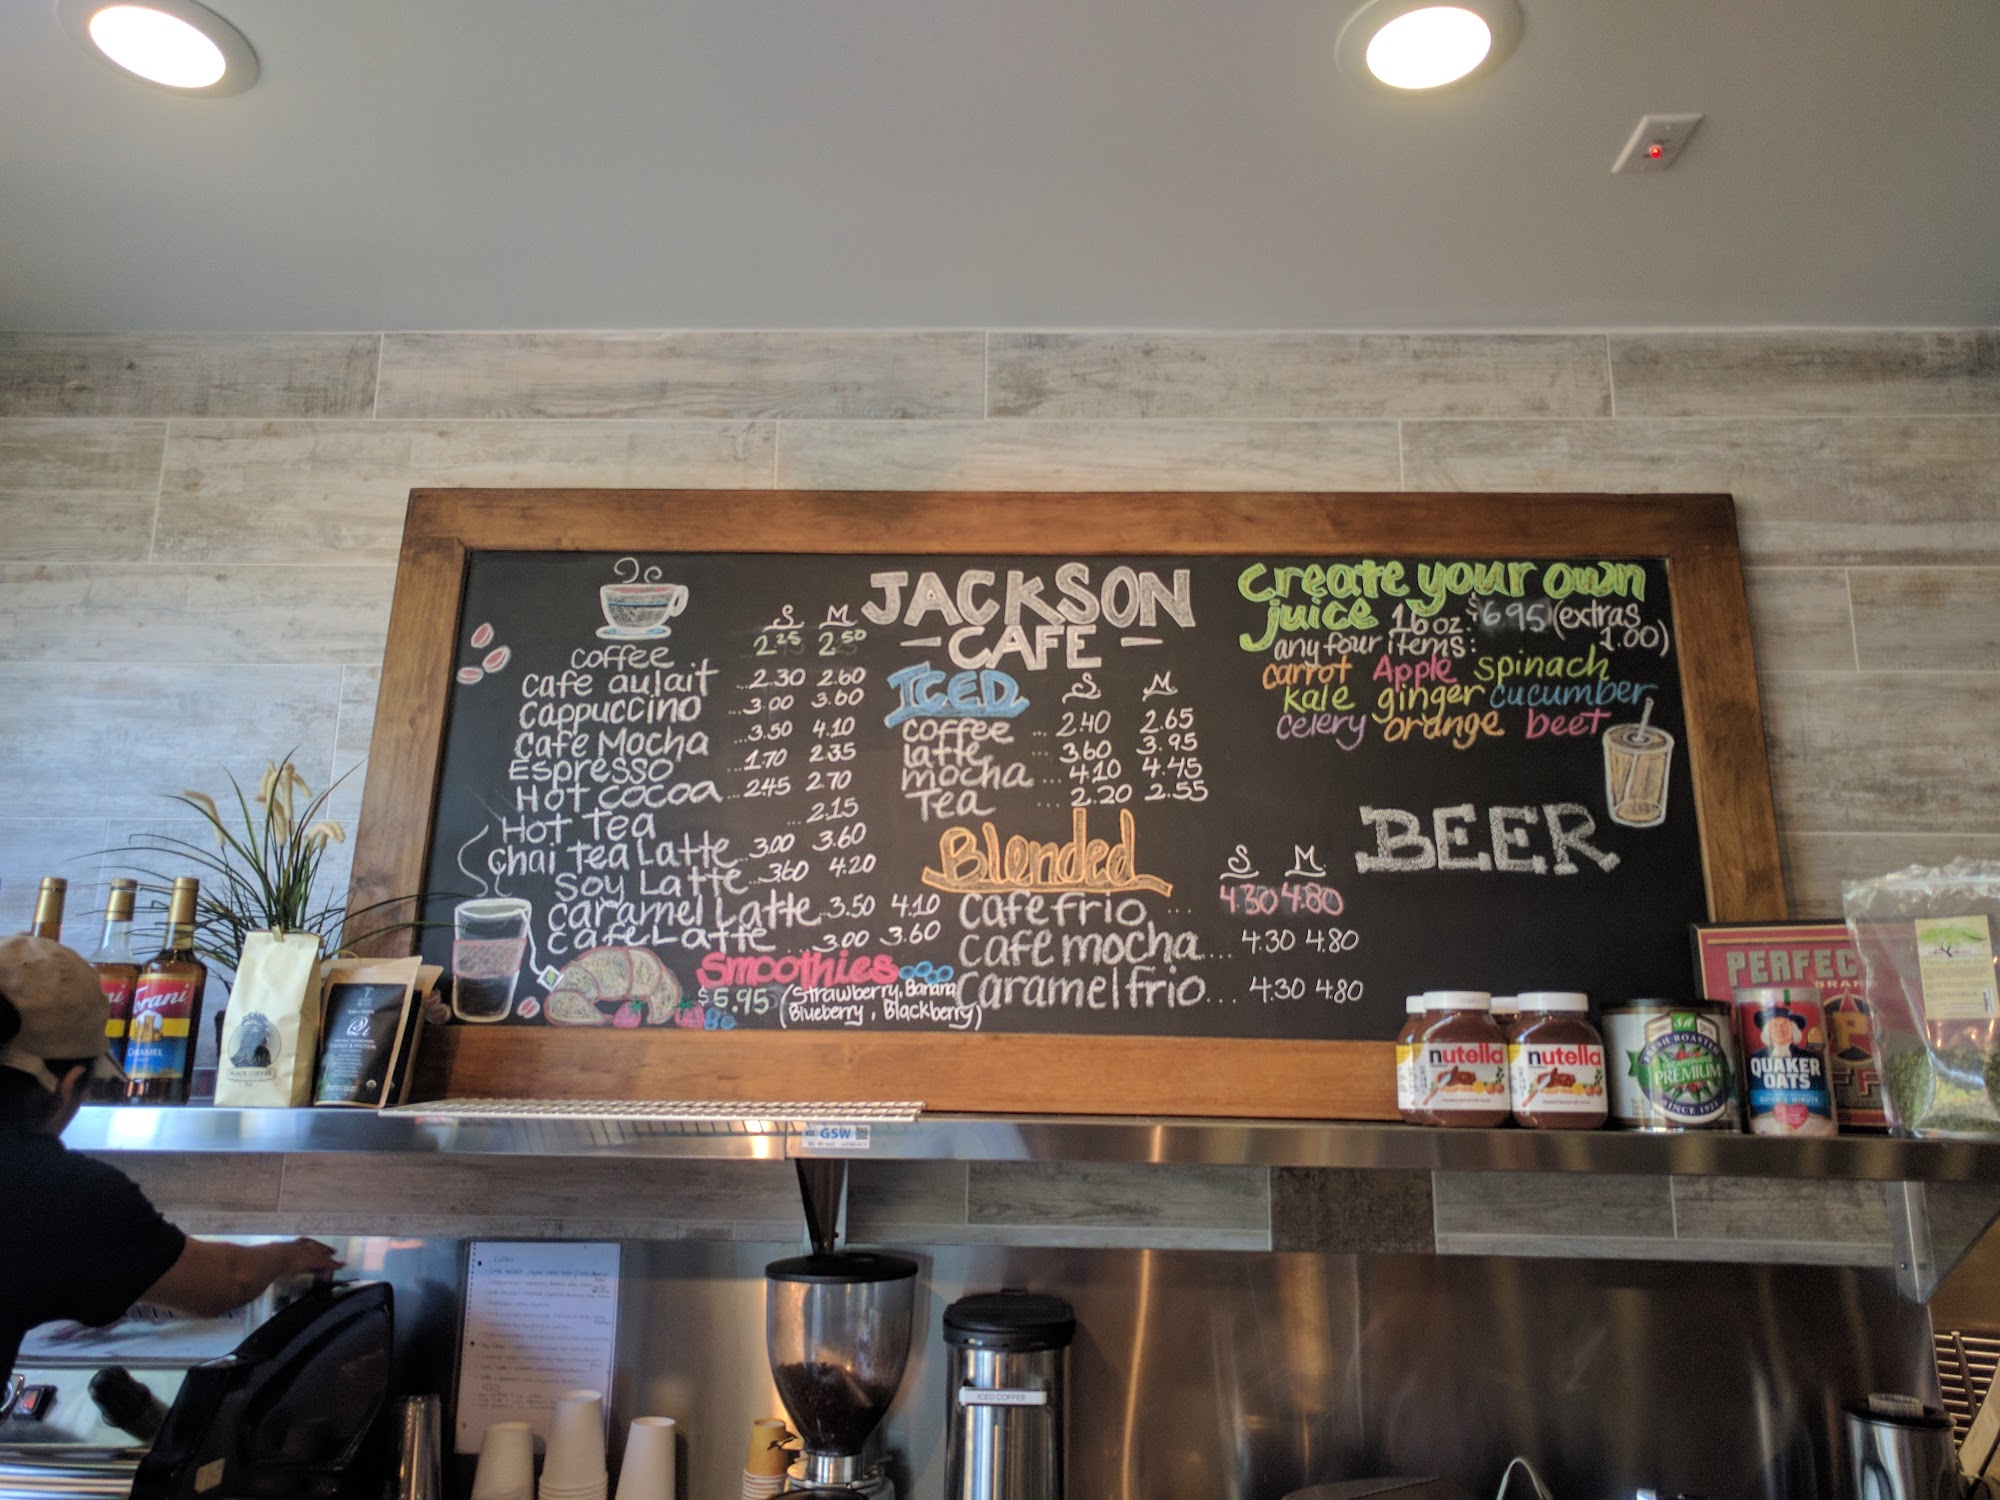 JACKSON
CAFE
S M
Coffee 2.25 2.50
Cafe aulait ...2.30 2.60
Cappuccino ...3.00 3.60
Cafe Mocha ...3.50 4.10
Espresso ...1.70 2.35
Hot cocoa ...2.45 2.70
Hot Tea ...2.15
Chai Tea Latte...3.00 3.60
Soy Latte...3.60 4.20
Caramel Latte..3.50 4.10
Cafe Latte.... 3.00 3.60
Smoothies
$5.95 (Strawberry, Banana
Blueberry, Blackberry)
ICED S M
coffee ... 2.40 2.65
latte ... 3.60 3.95
mocha ... 4.10 4.45
Tea ... 2.20 2.55
Blended S M
Cafe frio ... 4.30 4.80
Cafe mocha... 4.30 4.80
Caramel frio... 4.30 4.80
Create your own
juice 16 oz. $6.95 (extras
any four items: 1.00)
carrot Apple spinach
kale ginger cucumber
celery orange beet
BEER
Torani
CARAMEL
BLACK COFFEE
GSW
nutella
nutella
FRESH ROASTED
PREMIUM
SINCE 1921
QUAKER
OATS
PERFEC
BRAND
ICED COFFEE